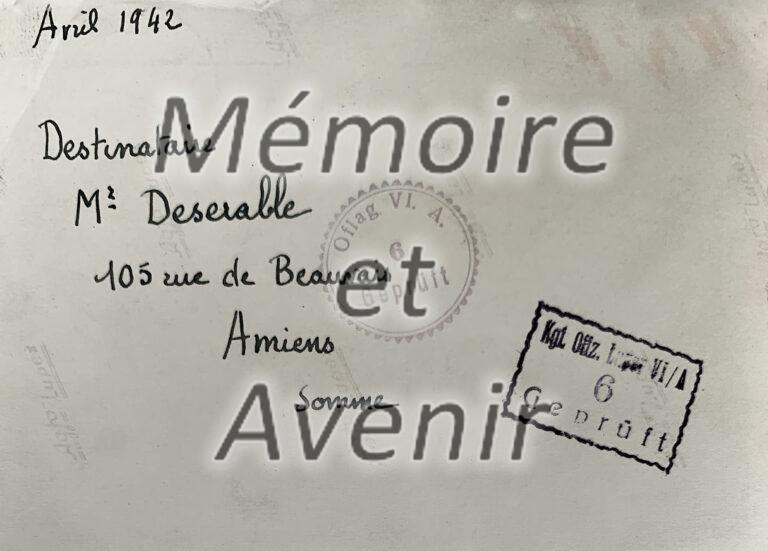 Avril 1942
Destinataire
Mr Deserable
105 rue de Beauvais
Amiens
Somme
Oflag VI. A.
6
Geprüft
Kgf. Offz. Lager VI/A
6
Geprüft
Mémoire
et
Avenir